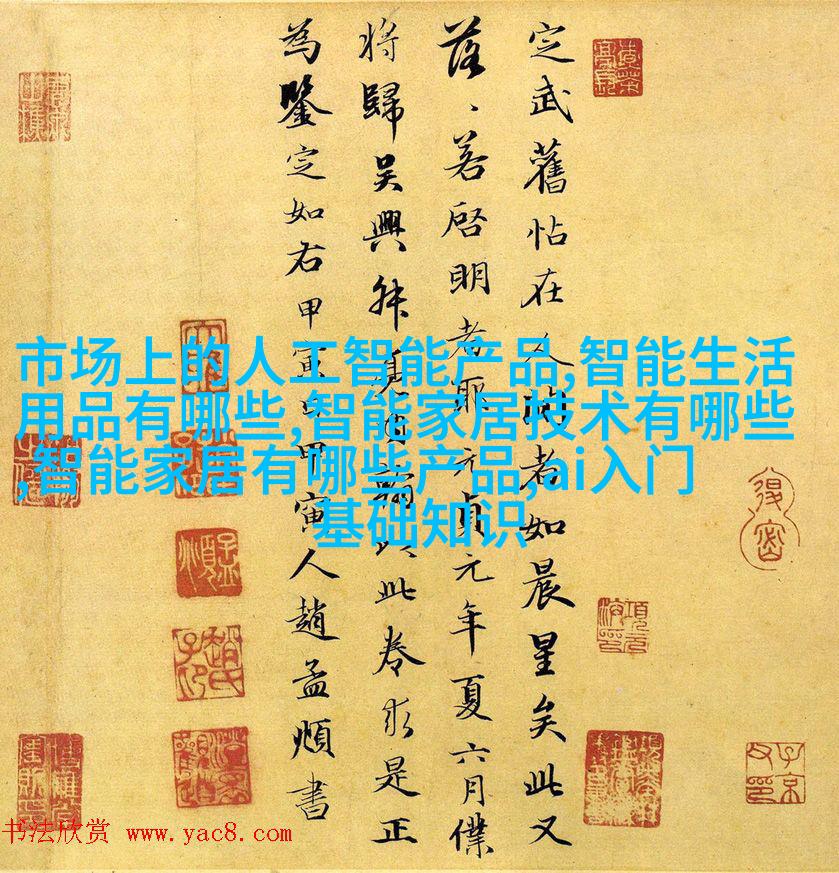 定武舊帖在人間者如晨星矣此又
落、若啓明者耶元貞元年夏六月僕
將歸吳興 翰以此卷求是正
為鑒定如右甲寅日甲寅人趙孟頫書
市场上的人工智能产品,智能生活
用品有哪些,智能家居技术有哪些
,智能家居有哪些产品,ai入门
基础知识
子京父印
书法欣赏 www.yac8.com